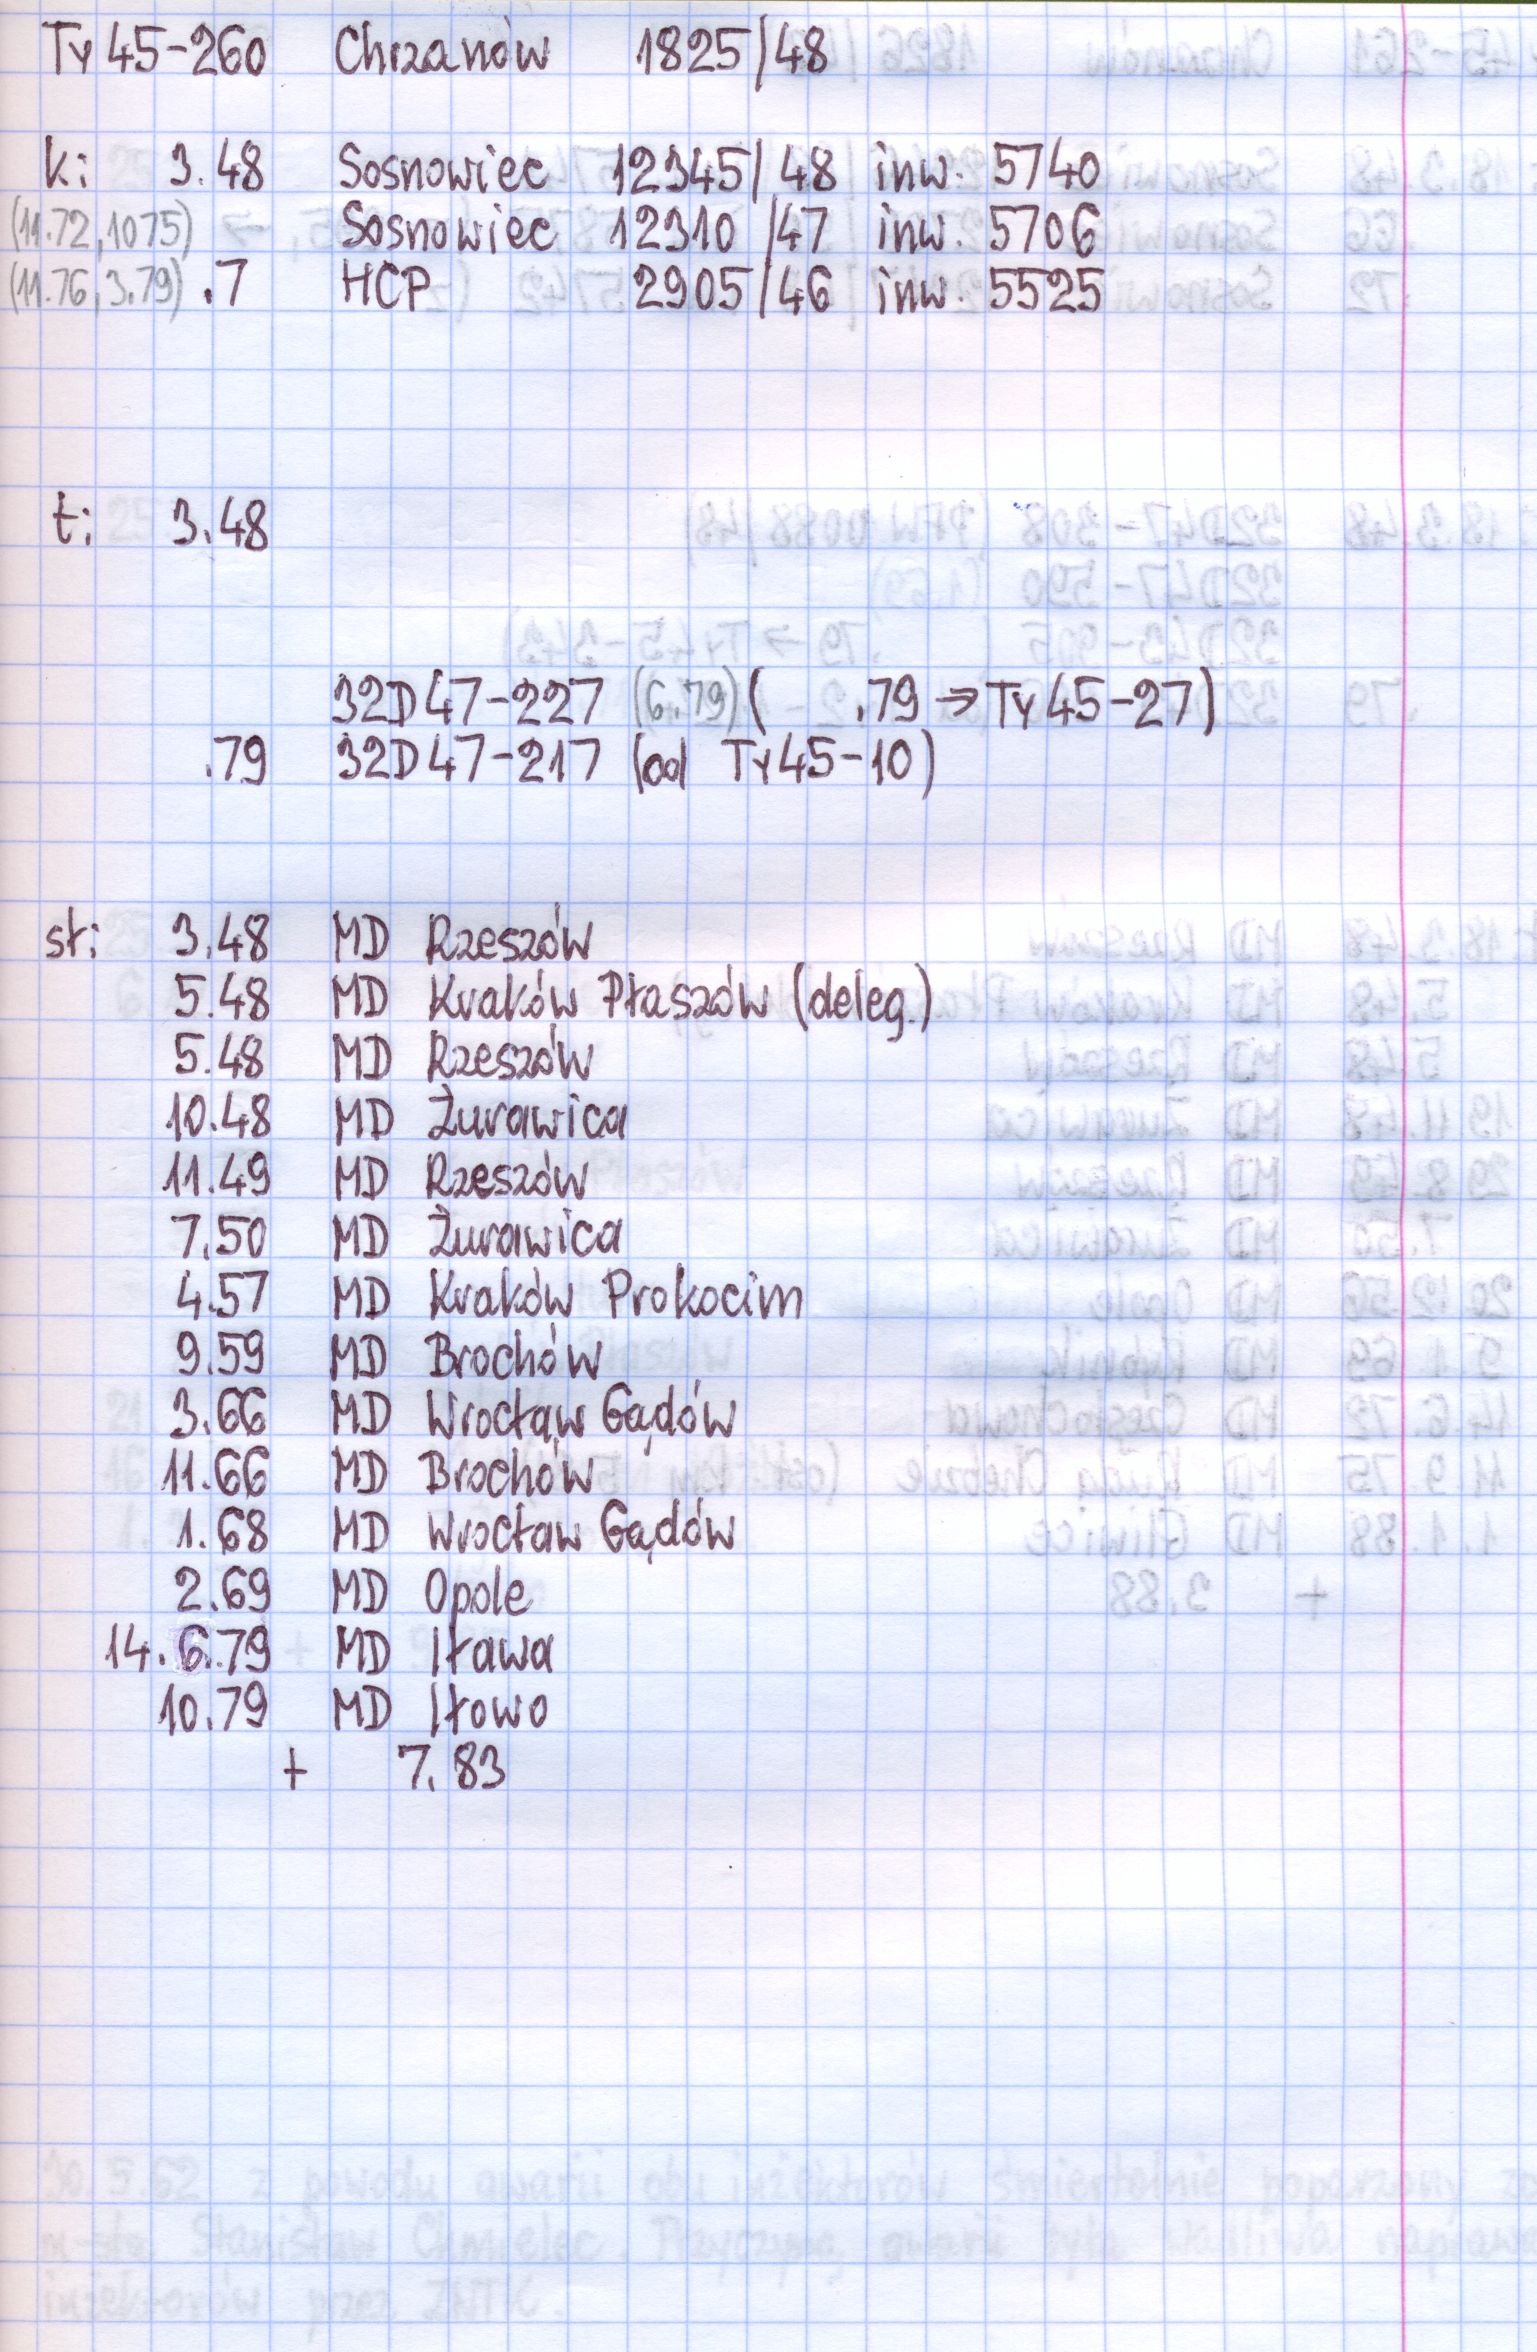 Ty45-260 Chrzanów 1825/48
k: 3.48 Sosnowiec 12345/48 inw. 5740
(11.72, 1075) Sosnowiec 12310/47 inw. 5706
(11.76, 3.79) .7 HCP 2905/46 inw. 5525
t: 3.48
32D47-227 (6.79) ( .79 → Ty45-27)
.79 32D47-217 (od Ty45-10)
st: 3.48 MD Rzeszów
5.48 MD Kraków Płaszów (deleg.)
5.48 MD Rzeszów
10.48 MD Żurawica
11.49 MD Rzeszów
7.50 MD Żurawica
4.57 MD Kraków Prokocim
9.59 MD Brochów
3.66 MD Wrocław Gądów
11.66 MD Brochów
1.68 MD Wrocław Gądów
2.69 MD Opole
14.6.79 MD Iława
10.79 MD Iłowo
+ 7.83
30.5.62 z powodu awarii obu inżektorów śmiertelnie poparzony
Stanisław Chmielec. Przyczyną awarii była wadliwa
inżektorów przez ZNTK.